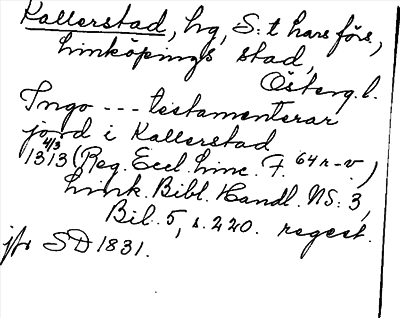 Kallerstad, hg, S:t Lars förs.,
Linköpings stad,
Österg.l.
Ingo --- testamenterar
jord i Kallerstad
4/3
1313 (Reg. Eccl. Linc. F. 64 r-v.)
Link. Bibl. Handl. NS. 3,
Bil. 5, s. 220. regest.
jfr SD 1831.